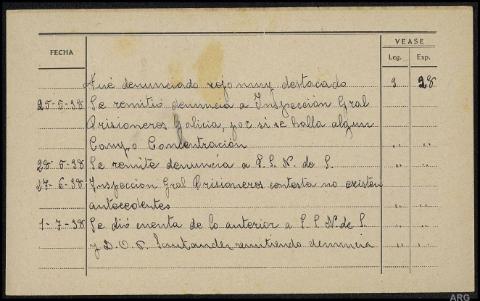 VEASE
FECHA
Leg.
Exp.
Fué denunciado rojo muy destacado 3 28
25-5-38 Se remitió denuncia a Inspección Gral
Prisioneros Galicia, por si se halla algun
Campo Concentración " "
28-5-38 Se remite denuncia a S. E. N. de S. " "
17-6-38 Inspección Gral Prisioneros contesta no existen
antecedentes " "
1-7-38 Se dió cuenta de lo anterior a S. E. N. de S.
y D.O.P. Santander remitiendo denuncia " "
ARG